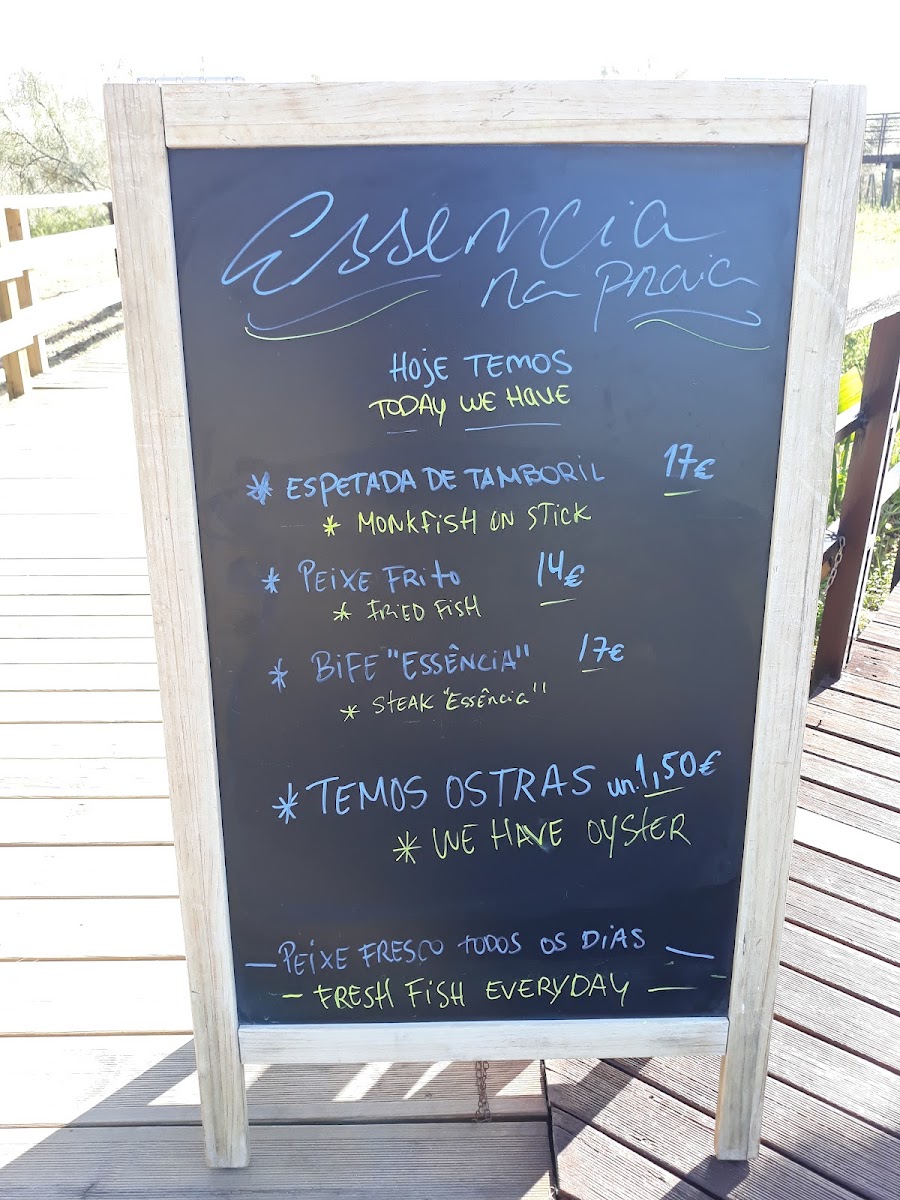 Essencia
na praia
HOJE TEMOS
TODAY WE HAVE
* ESPETADA DE TAMBORIL 17€
* MONKFISH ON STICK
* PEIXE FRITO 14€
* FRIED FISH
* BIFE "ESSÊNCIA" 17€
* STEAK "Essência"
* TEMOS OSTRAS un. 1,50€
* WE HAVE OYSTER
- PEIXE FRESCO TODOS OS DIAS -
- FRESH FISH EVERYDAY -